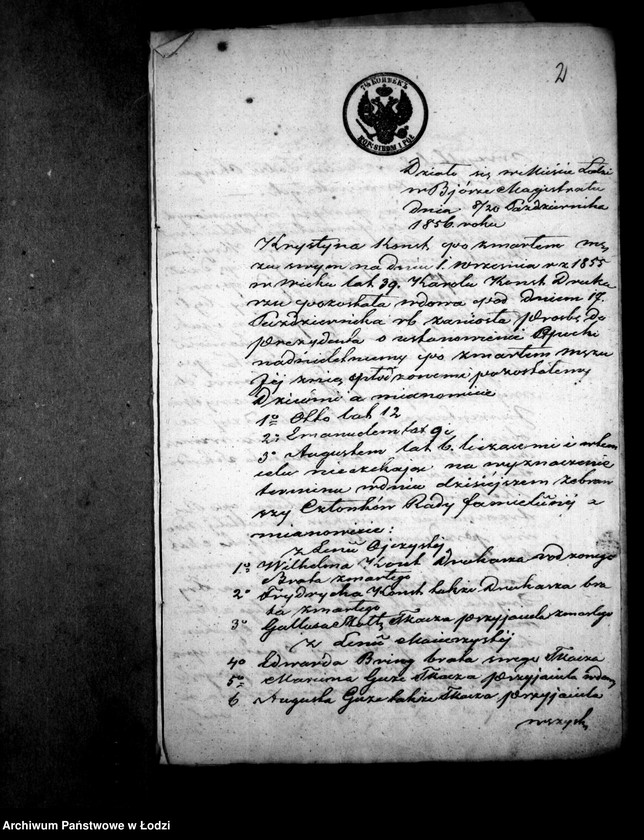 2
7½ КОПѢЕКЪ
КОП. SREBR. I POŁ
Działo się w Mieście Łodzi
w Biórze Magistratu
dnia 8/20 Października
1856 roku
Krystyna Kenst po zmarłem mę
żu swym na dniu 1. Września r z 1855
w wieku lat 39. Karolu Kenst Druka
rzu pozostała wdowa pod dniem 17.
Października rb zaniosła prośbę do
Prezydenta o ustanowienie Opieki
nad nieletniemi po zmarłem mężu
Jej z nią spłodzonemi pozostałemi
Dziećmi a mianowicie
1o Otto lat 12
2o Emanuelem lat 9 i
3o Augustem lat 6. liczącemi i w tem
celu nieczekając na wyznaczenie
terminu w dniu dzisiejszem zebraw
szy Członków Rady familijnéj a
mianowicie:
z Linii Ojczystéj
1o Wilhelma Kenst Drukarza rodzonego
Brata zmarłego
2o Frydrycha Kenst także Drukarza bra
ta zmarłego
3o Gallusa Tkacza przyjaciela zmarłego
z Linii Macierzystéj
4o Edwarda Bring brata swego Tkacza
5o Marcina Guze Tkacza przyjaciela wdowy
6 Augusta Guze także Tkacza przyjaciela
wszych
Archiwum Państwowe w Łodzi